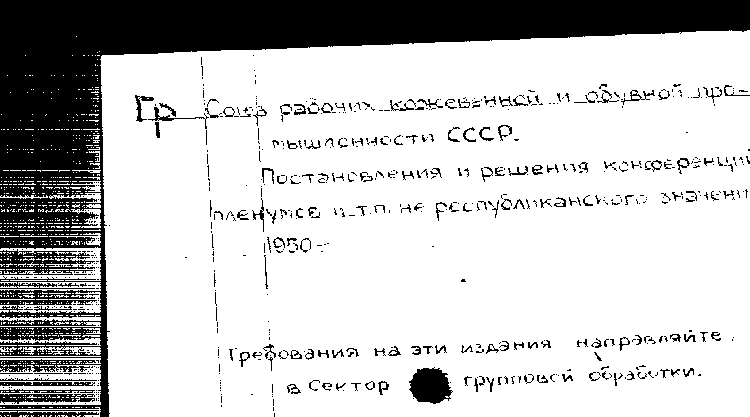 Гр Союз рабочих кожевенной и обувной про-
мышленности СССР.
Постановления и решения конференций
пленумов и т.п. не республиканского значени
1950-
Требования на эти издания направляйте
в Сектор групповой обработки.